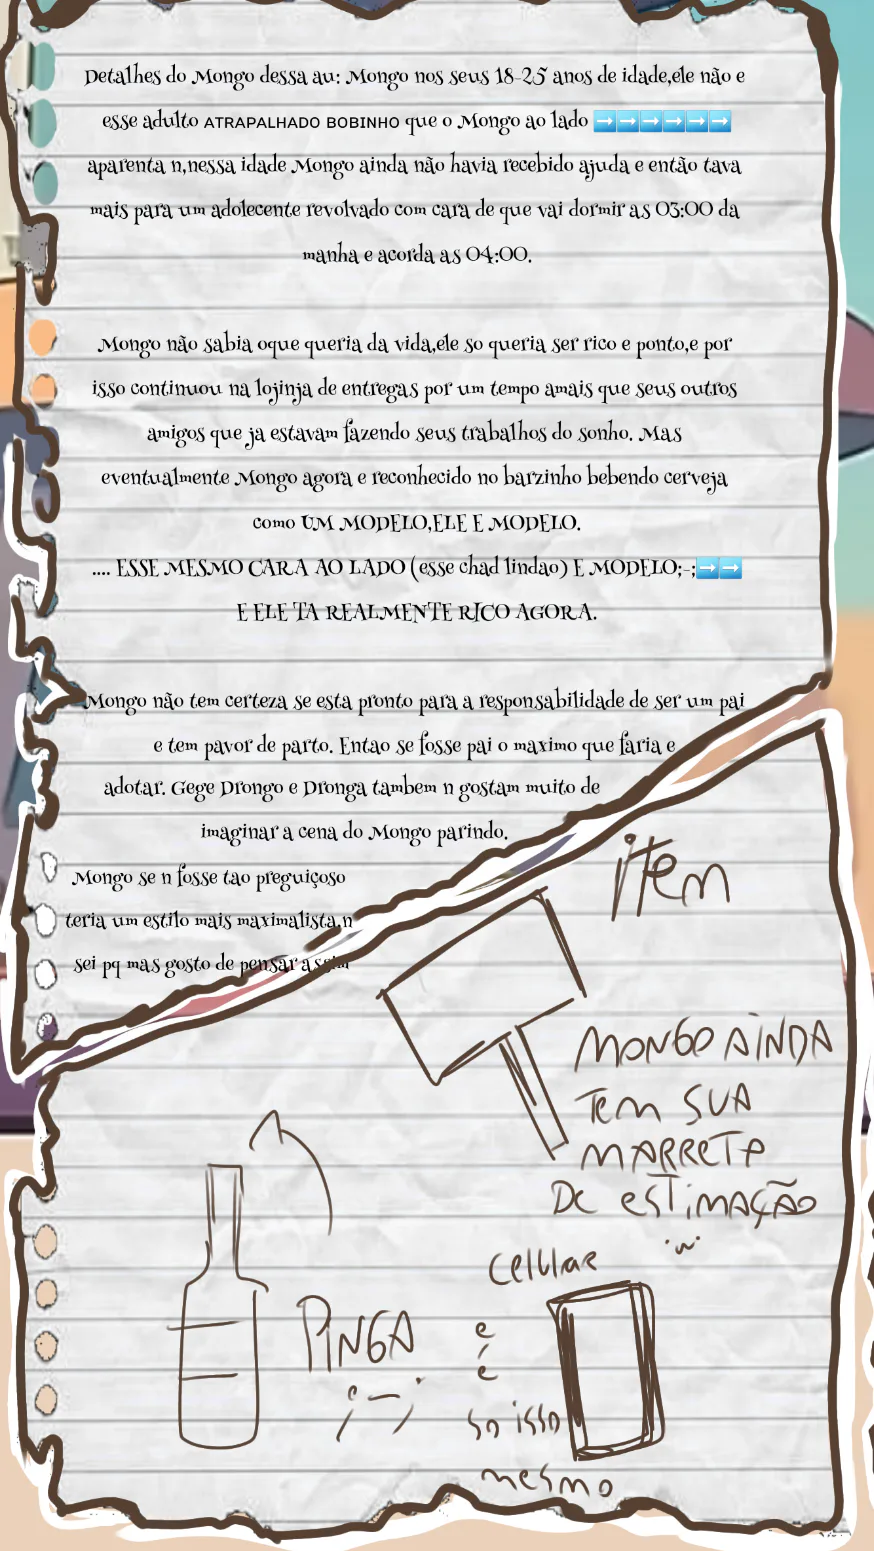 Detalhes do Mongo dessa au: Mongo nos seus 18-25 anos de idade,ele não e
esse adulto ATRAPALHADO BOBINHO que o Mongo ao lado ➡️➡️➡️➡️➡️➡️
aparenta n,nessa idade Mongo ainda não havia recebido ajuda e então tava
mais para um adolecente revolvado com cara de que vai dormir as 03:00 da
manha e acorda as 04:00.
Mongo não sabia oque queria da vida,ele so queria ser rico e ponto,e por
isso continuou na lojinja de entregas por um tempo amais que seus outros
amigos que ja estavam fazendo seus trabalhos do sonho. Mas
eventualmente Mongo agora e reconhecido no barzinho bebendo cerveja
como UM MODELO,ELE E MODELO.
.... ESSE MESMO CARA AO LADO (esse chad lindao) E MODELO;-;➡️➡️
E ELE TA REALMENTE RICO AGORA.
Mongo não tem certeza se esta pronto para a responsabilidade de ser um pai
e tem pavor de parto. Entao se fosse pai o maximo que faria e
adotar. Gege Drongo e Dronga tambem n gostam muito de
imaginar a cena do Mongo parindo.
Mongo se n fosse tao preguiçoso
teria um estilo mais maximalista,n
sei pq mas gosto de pensar assim
item
MONGO AINDA
TEM SUA
MARRETA
DE ESTIMAÇÃO
'w'
CELULAR
PINGA
;-;
e
é
so isso
mesmo